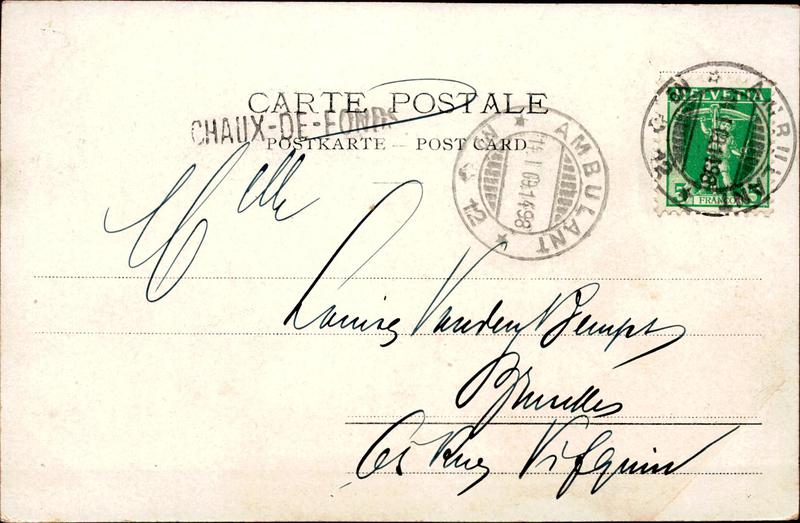 CARTE POSTALE
CHAUX-DE-FONDS
POSTKARTE – POST CARD
AMBULANT
14.I.09.1498
No 12
HELVETIA
5
FRANCO
AMBULANT
Mlle
Louise Vanden Kempt
Bruxelles
Rue Vifquin